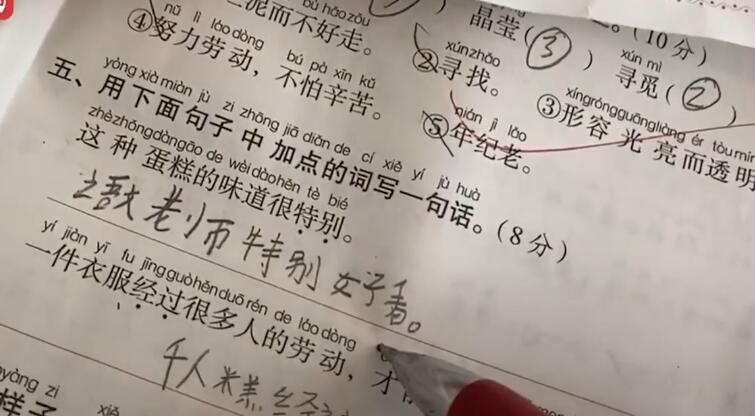 泥而不好走。
晶莹(③)
(10分)
nǔ lì láo dòng bú pà xīn kǔ
④努力劳动，不怕辛苦。
xún zhǎo
②寻找。
xún mì
寻觅(②)
xíng róng guāng liàng ér tòu míng
③形容光亮而透明
nián jì lǎo
⑤年纪老。
yòng xià miàn jù zi zhōng jiā diǎn de cí xiě yí jù huà
五、用下面句子中加点的词写一句话。(8分)
zhè zhǒng dàn gāo de wèi dào hěn tè bié
这种蛋糕的味道很特别。
老师特别好看。
yí jiàn yī fu jīng guò hěn duō rén de láo dòng
一件衣服经过很多人的劳动，才
千人糕经
yàng zi
样子
xiě